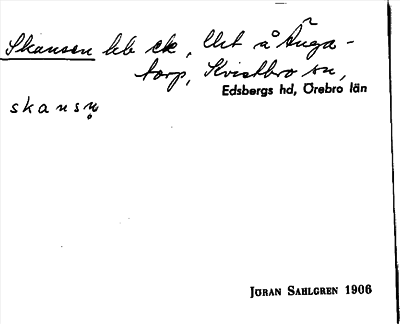 Skansen lht ck, Utt å Ånga-
torp, Kvistbro sn,
Edsbergs hd, Örebro län
skansn̥
JÖRAN SAHLGREN 1906